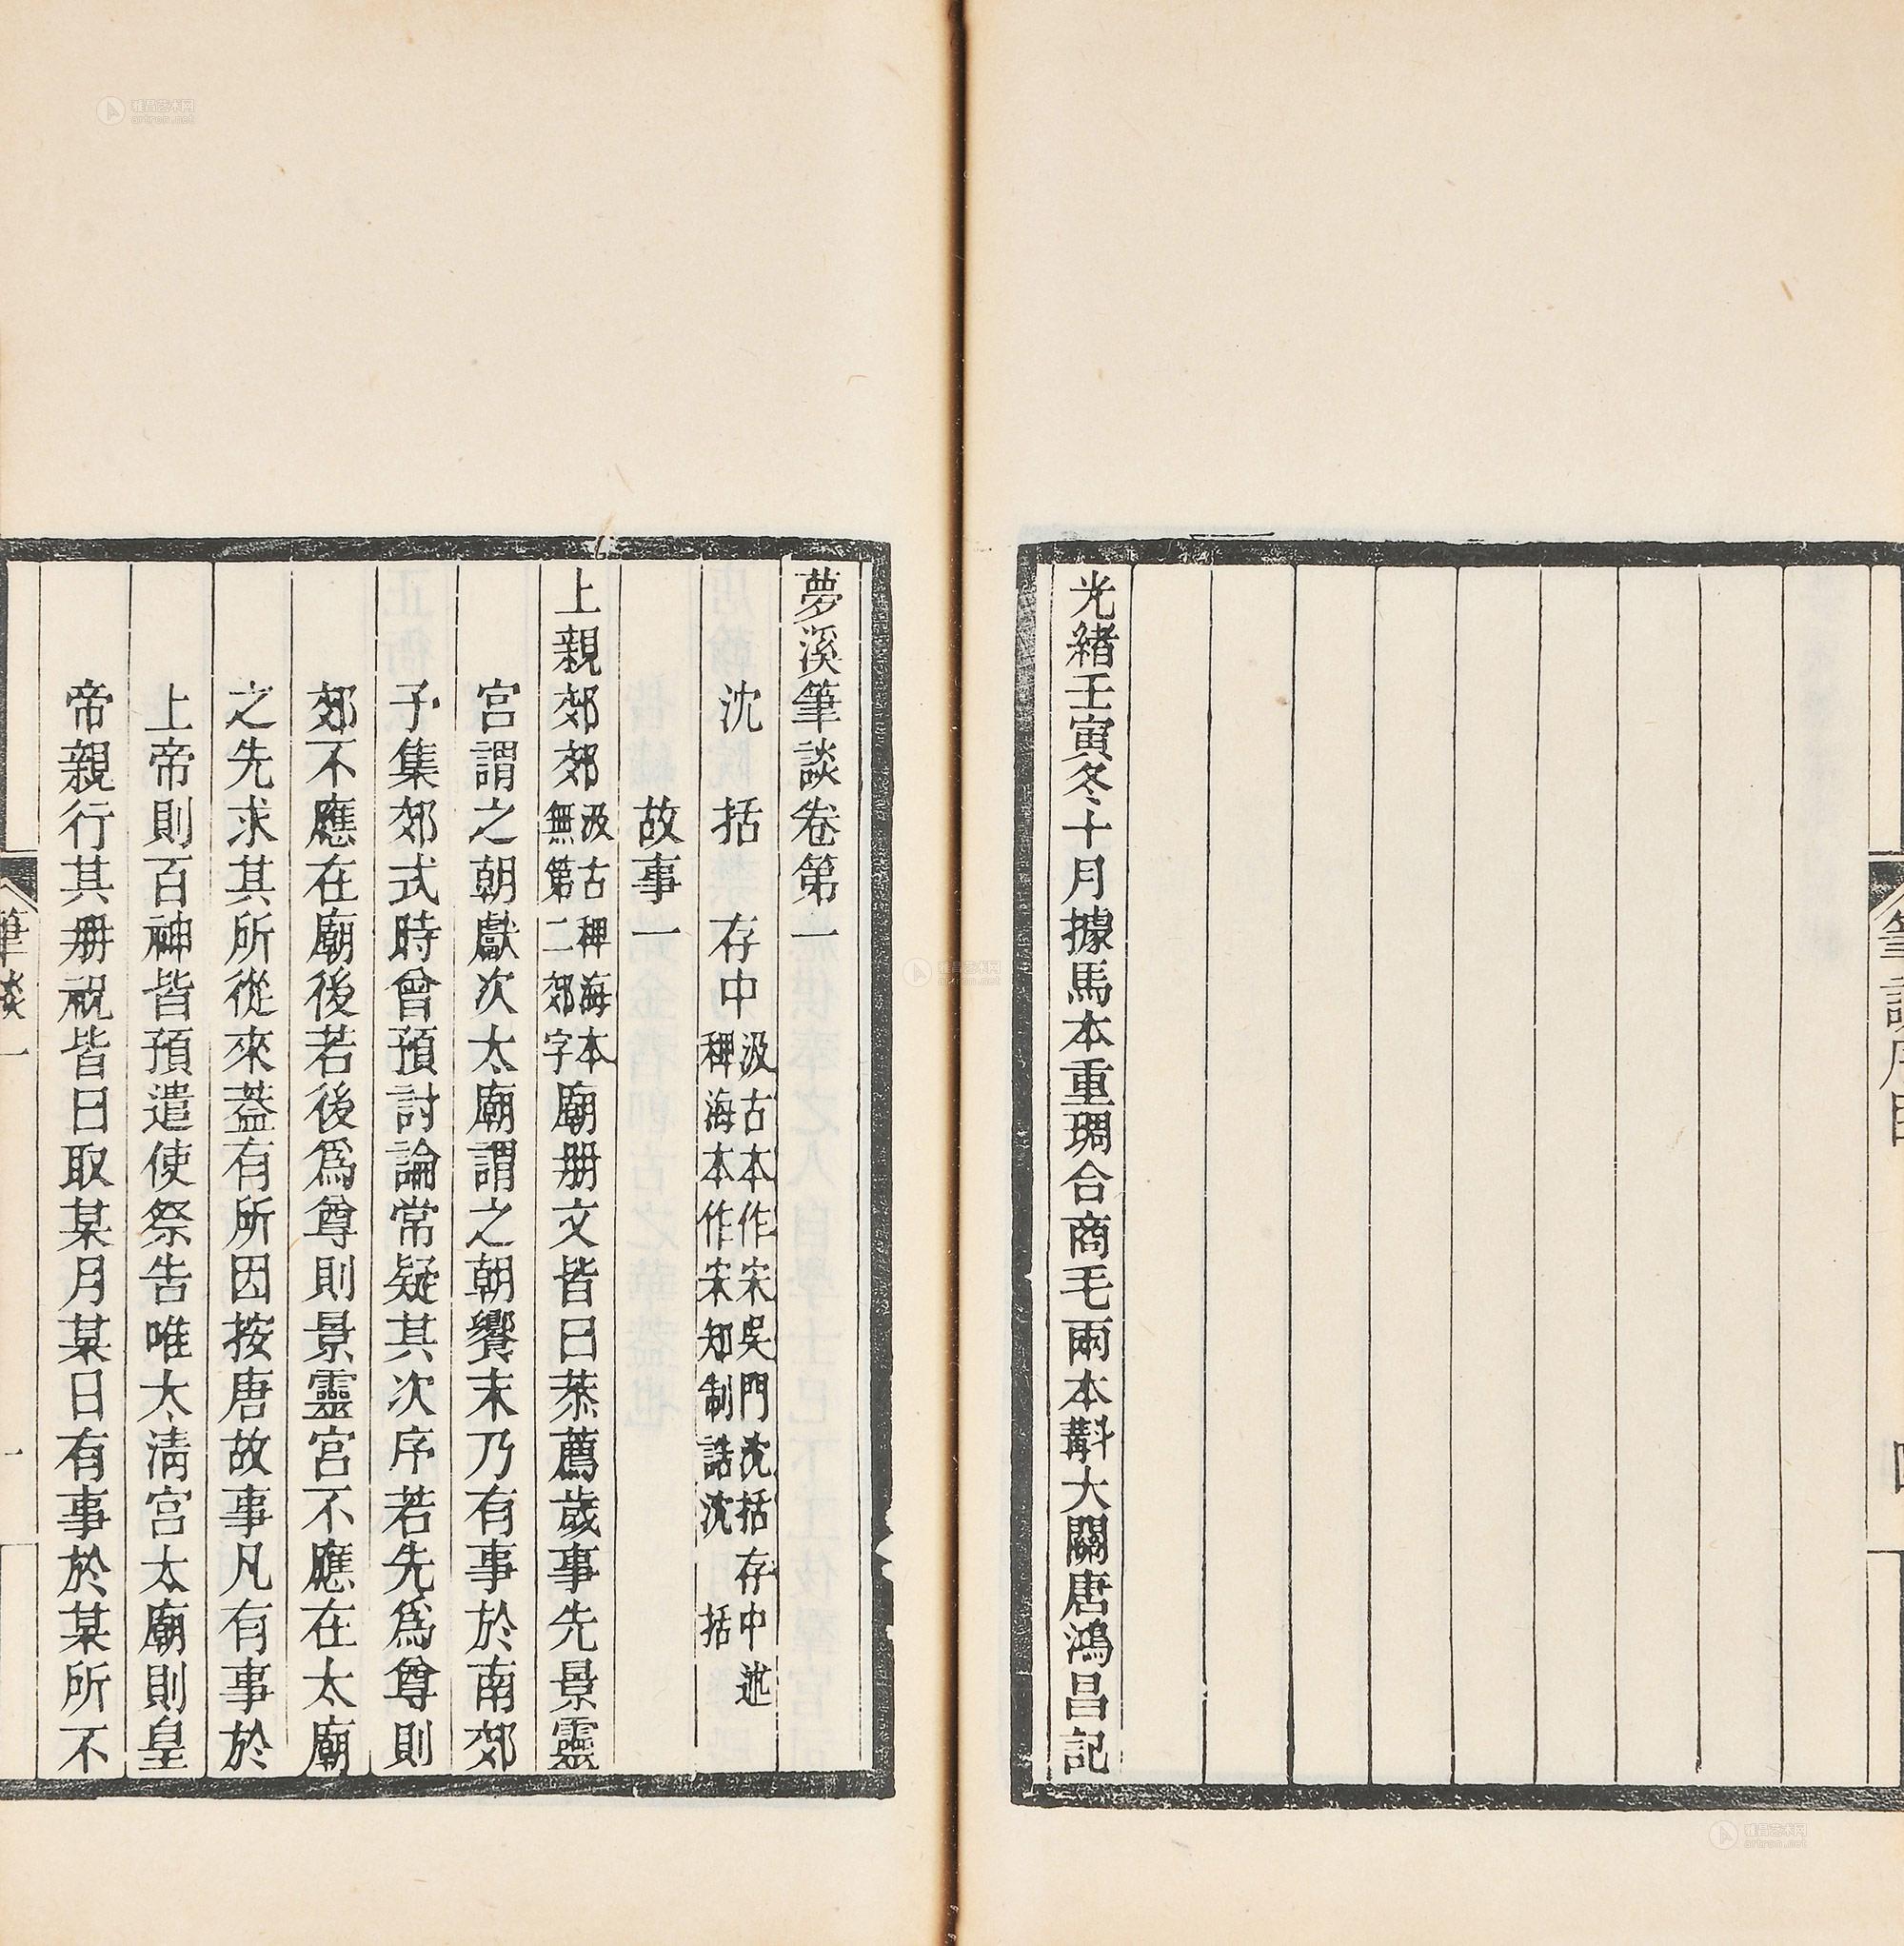 筆談序目 四
光緒壬寅冬十月據馬本重琱合商毛兩本斠大關唐鴻昌記
夢溪筆談卷第一
沈 括 存中 汲古本作宋吳門沈括存中述 稗海本作宋知制誥沈 括
故事一
上親郊郊 汲古稗海本 無第二郊字 廟册文皆曰恭薦歲事先景靈
宮謂之朝獻次太廟謂之朝饗末乃有事於南郊
子集郊式時曾預討論常疑其次序若先爲尊則
郊不應在廟後若後爲尊則景靈宮不應在太廟
之先求其所從來蓋有所因按唐故事凡有事於
上帝則百神皆預遣使祭告唯太清宮太廟則皇
帝親行其册祝皆曰取某月某日有事於某所不
筆談一 一
雅昌艺术网
artron.net
雅昌艺术网
artron.net
雅昌艺术网
artron.net